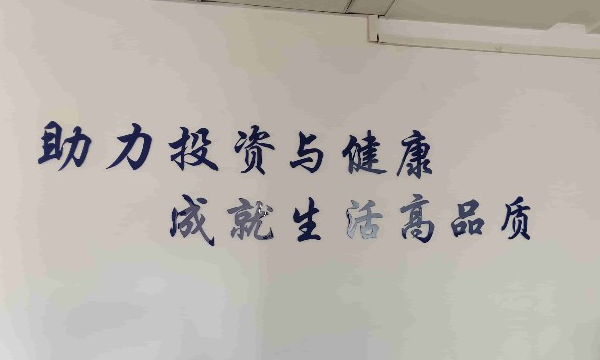 助力投资与健康
成就生活高品质